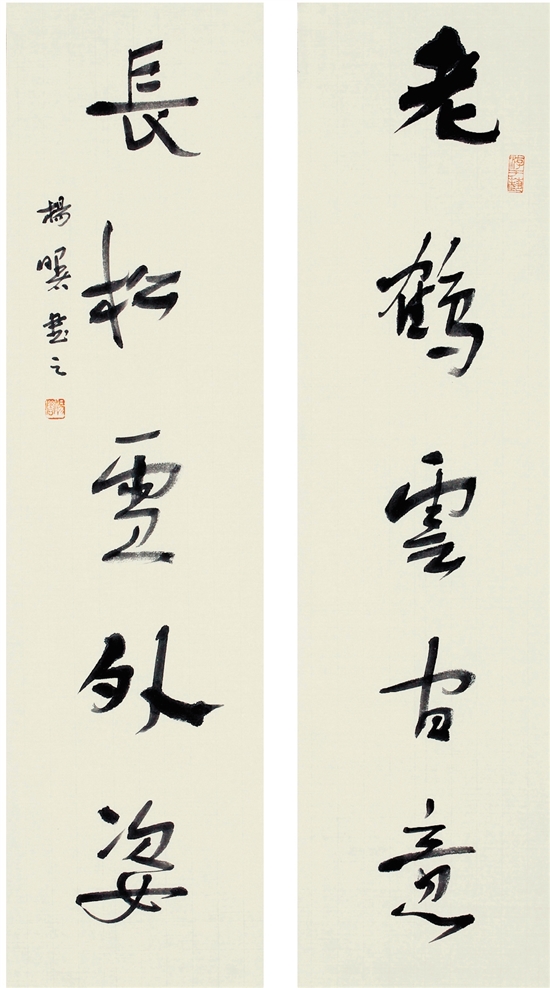 老鶴雲間意
長松雪外姿
楊 書之